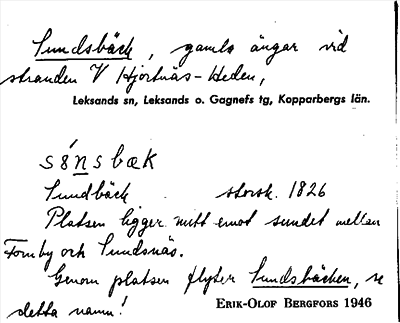 Sundsbäck, gamla ängar vid
stranden V Hjortnäs-Heden,
Leksands sn, Leksands o. Gagnefs tg, Kopparbergs län.
sønsbæk
Sundbäck storsk. 1826
Platsen ligger mitt emot sundet mellan
Tomby och Sundsnäs.
Genom platsen flyter Sundsbäcken, se
detta namn!
ERIK-OLOF BERGFORS 1946